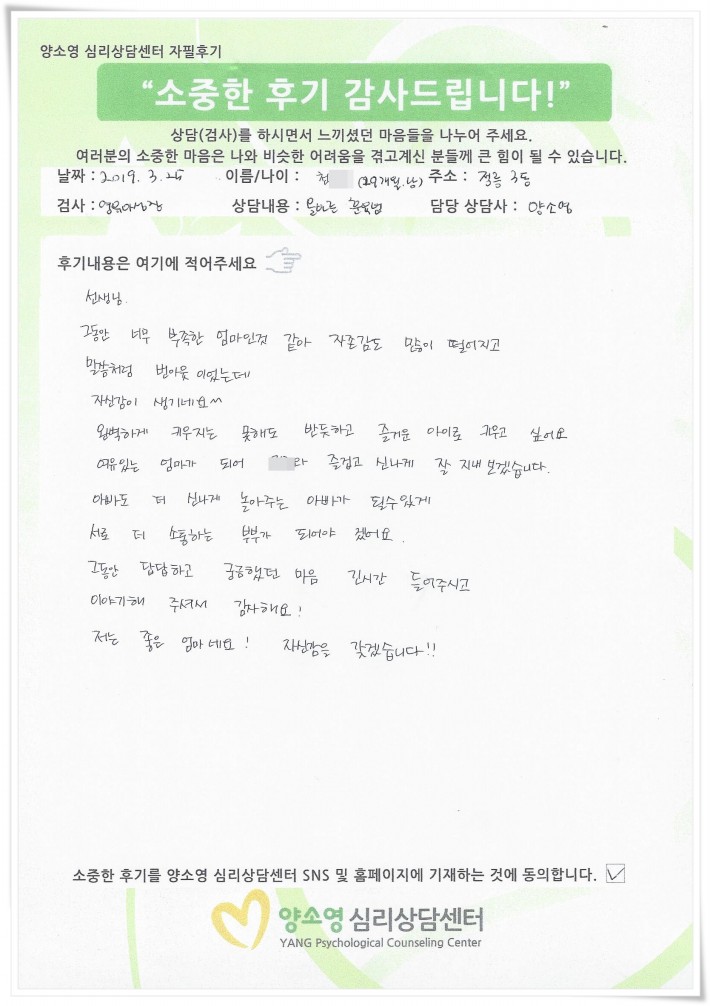 양소영 심리상담센터 자필후기
“소중한 후기 감사드립니다!”
상담(검사)를 하시면서 느끼셨던 마음들을 나누어 주세요.
여러분의 소중한 마음은 나와 비슷한 어려움을 겪고계신 분들께 큰 힘이 될 수 있습니다.
날짜 : 2019. 3. 26 이름/나이 : (29개월.남) 주소 : 정릉 3동
검사 : 상담내용 : 올바른 훈육법 담당 상담사 : 양소영
후기내용은 여기에 적어주세요
선생님.
그동안 너무 부족한 엄마인것 같아 자존감도 많이 떨어지고
말씀처럼 번아웃 이었는데
자신감이 생기네요^^
완벽하게 키우지는 못해도 반듯하고 즐거운 아이로 키우고 싶어요
여유있는 엄마가 되어 라 즐겁고 신나게 잘 지내 보겠습니다.
아빠도 더 신나게 놀아주는 아빠가 될수있게
서로 더 소통하는 부부가 되어야 겠어요.
그동안 답답하고 궁금했던 마음 긴시간 들어주시고
이야기해 주셔서 감사해요!
저는 좋은 엄마네요! 자신감을 갖겠습니다!!
소중한 후기를 양소영 심리상담센터 SNS 및 홈페이지에 기재하는 것에 동의합니다.
양소영 심리상담센터
YANG Psychological Counseling Center